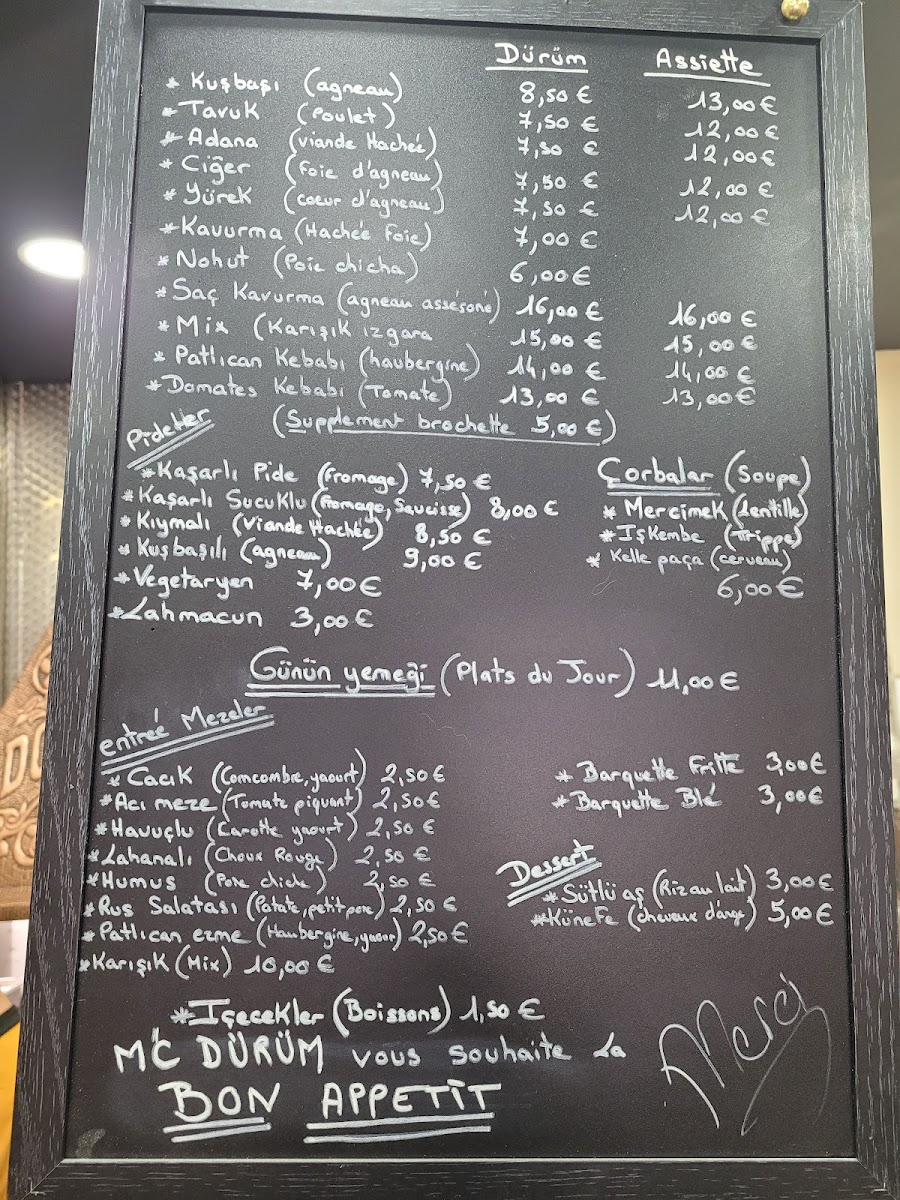 Dürüm Assiette
* Kuşbaşı (agneau) 8,50 € 13,00 €
* Tavuk (Poulet) 7,50 € 12,00 €
* Adana (viande Hachée) 7,50 € 12,00 €
* Ciğer (Foie d'agneau) 7,50 € 12,00 €
* Yürek (coeur d'agneau) 7,50 € 12,00 €
* Kavurma (Hachée Foie) 7,00 €
* Nohut (Poie chicha) 6,00 €
* Saç Kavurma (agneau assésoné) 16,00 € 16,00 €
* Mix (Karışık ızgara 15,00 € 15,00 €
* Patlıcan Kebabı (haubergine) 14,00 € 14,00 €
* Domates Kebabı (Tomate) 13,00 € 13,00 €
(Supplement brochette 5,00 €)
Pideler
* Kaşarlı Pide (Fromage) 7,50 €
* Kaşarlı Sucuklu (Fromage, Saucisse) 8,00 €
* Kıymalı (Viande Hachée) 8,50 €
* Kuşbaşılı (agneau) 9,00 €
* Vegetaryen 7,00 €
* Lahmacun 3,00 €
Çorbalar (Soupe)
* Mercimek (Lentille)
* Işkembe (Trippe)
* Kelle paça (cerveau)
6,00 €
Günün yemeği (Plats du Jour) 11,00 €
entreé Mezeler
* Cacık (Comcombre, yaourt) 2,50 €
* Acı meze (Tomate piquant) 2,50 €
* Havuçlu (Carotte yaourt) 2,50 €
* Lahanalı (Choux Rouge) 2,50 €
* Humus (Pois chiche) 2,50 €
* Rus Salatası (Patate, petit pore) 2,50 €
* Patlıcan ezme (Haubergine, yaour) 2,50 €
* Karışık (Mix) 10,00 €
* Barquette Fritte 3,00 €
* Barquette Blé 3,00 €
Dessert
* Sütlü aş (Riz au lait) 3,00 €
* Künefe (cheveux d'ange) 5,00 €
* Içecekler (Boissons) 1,50 €
M'C DÜRÜM vous souhaite La
BON APPETIT
Merci